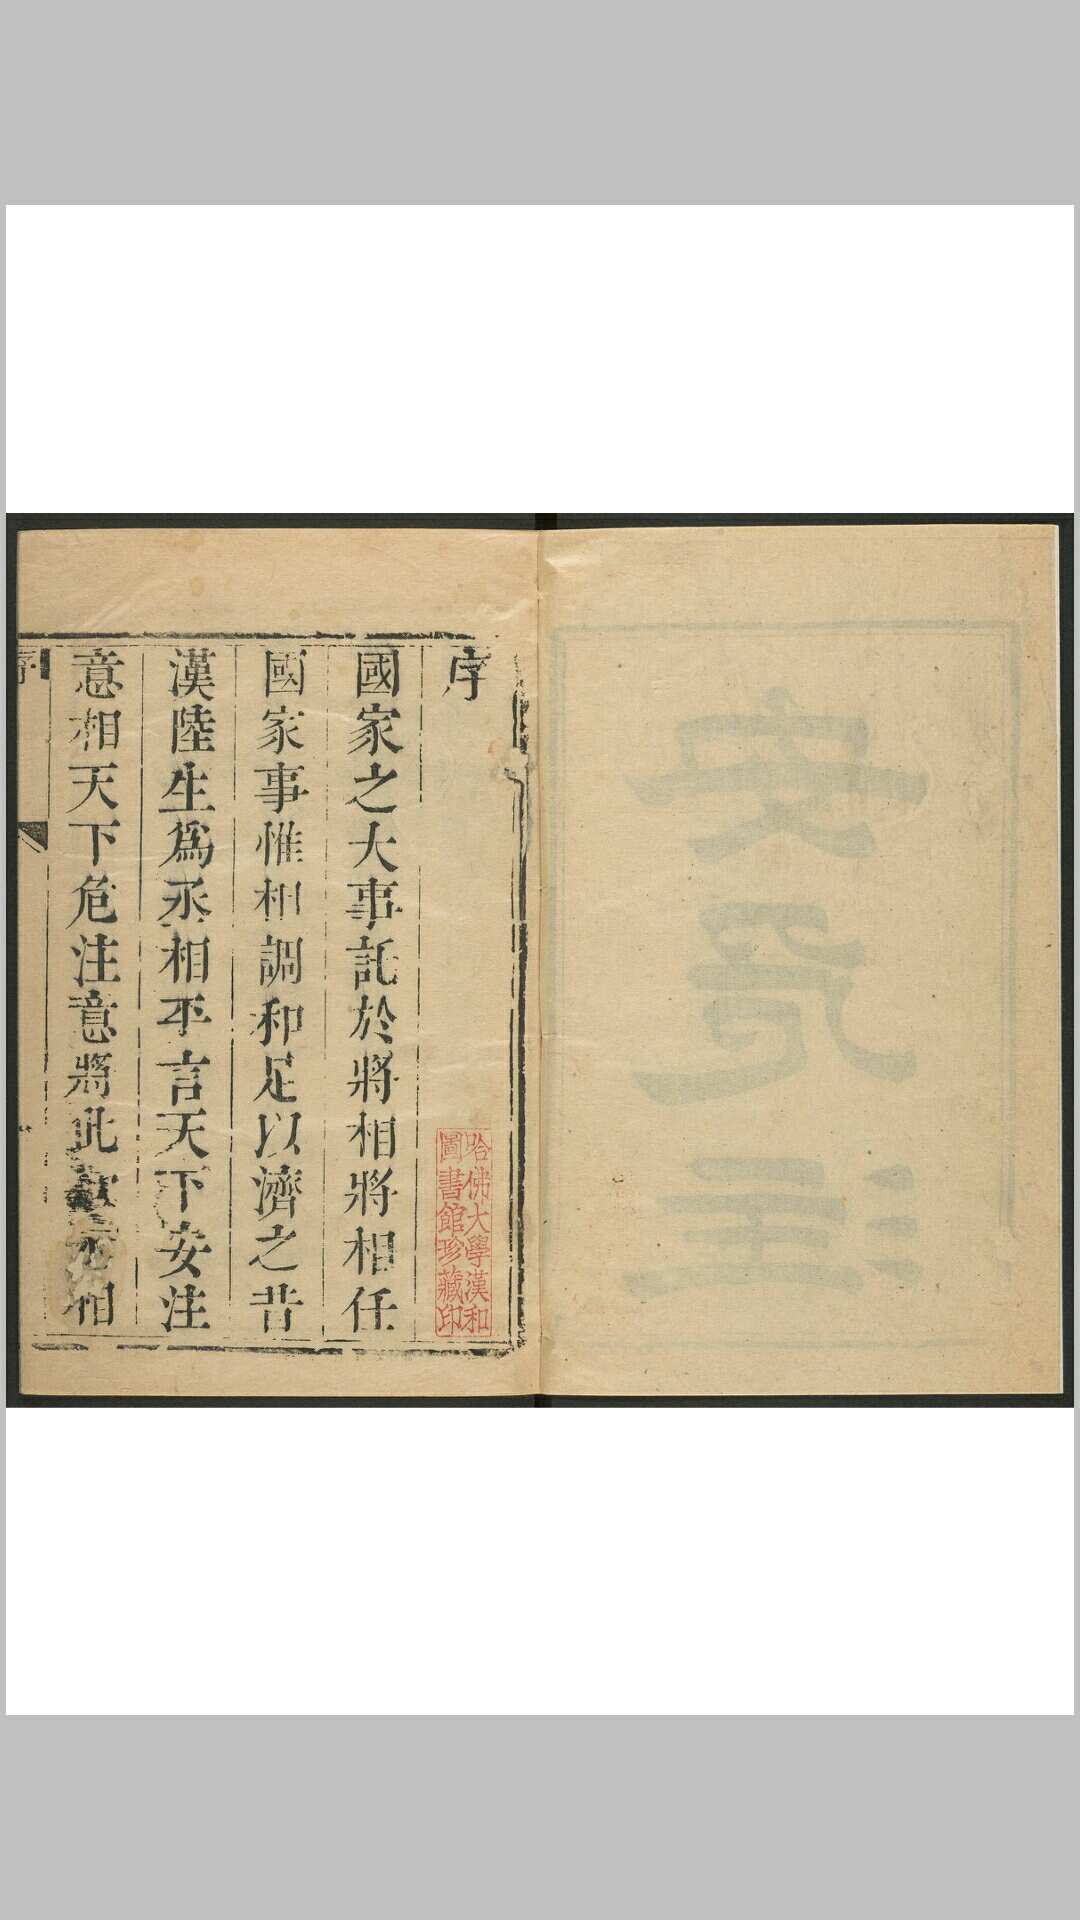 序
國家之大事託於將相將相任
國家事惟相調和足以濟之昔
漢陸生爲丞相平言天下安注
意相天下危注意將此
相
序
哈佛大學漢和
圖書館珍藏印